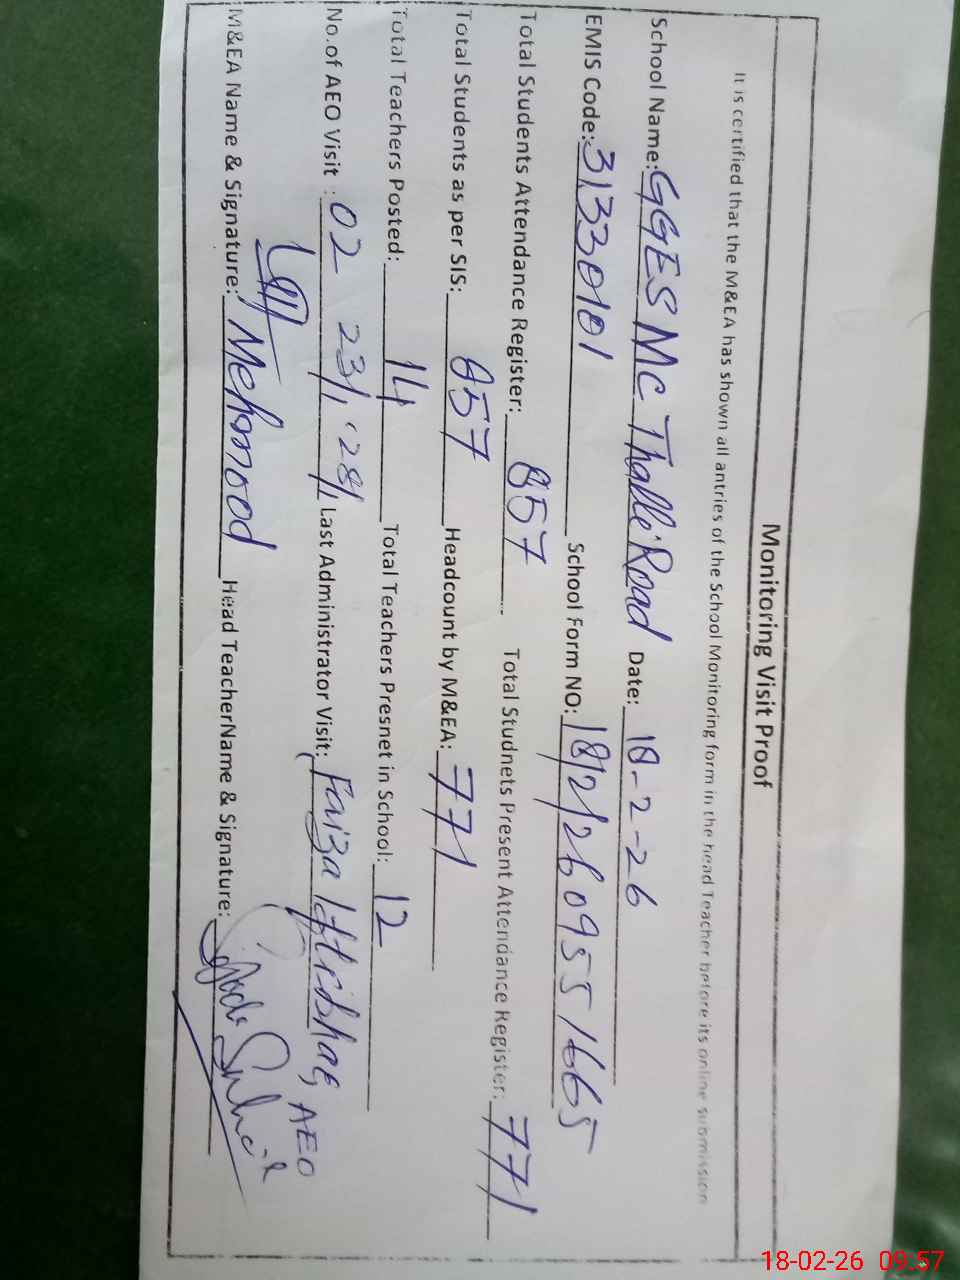 Monitoring Visit Proof
It is certified that the M&EA has shown all antries of the School Monitoring form in the head Teacher before its online submission
School Name: GGES MC Thalle Road Date: 18-2-26
EMIS Code: 31330101 School Form NO: 18/2/26 0955 1665
Total Students Attendance Register: 857 Total Studnets Present Attendance Register: 771
Total Students as per SIS: 857 Headcount by M&EA: 771
Total Teachers Posted: 14 Total Teachers Presnet in School: 12
No.of AEO Visit : 02 23/1, 28/1 Last Administrator Visit: Faiza Iftikhar, AEO
M&EA Name & Signature: Mehmood Head TeacherName & Signature:
18-02-26 09:57